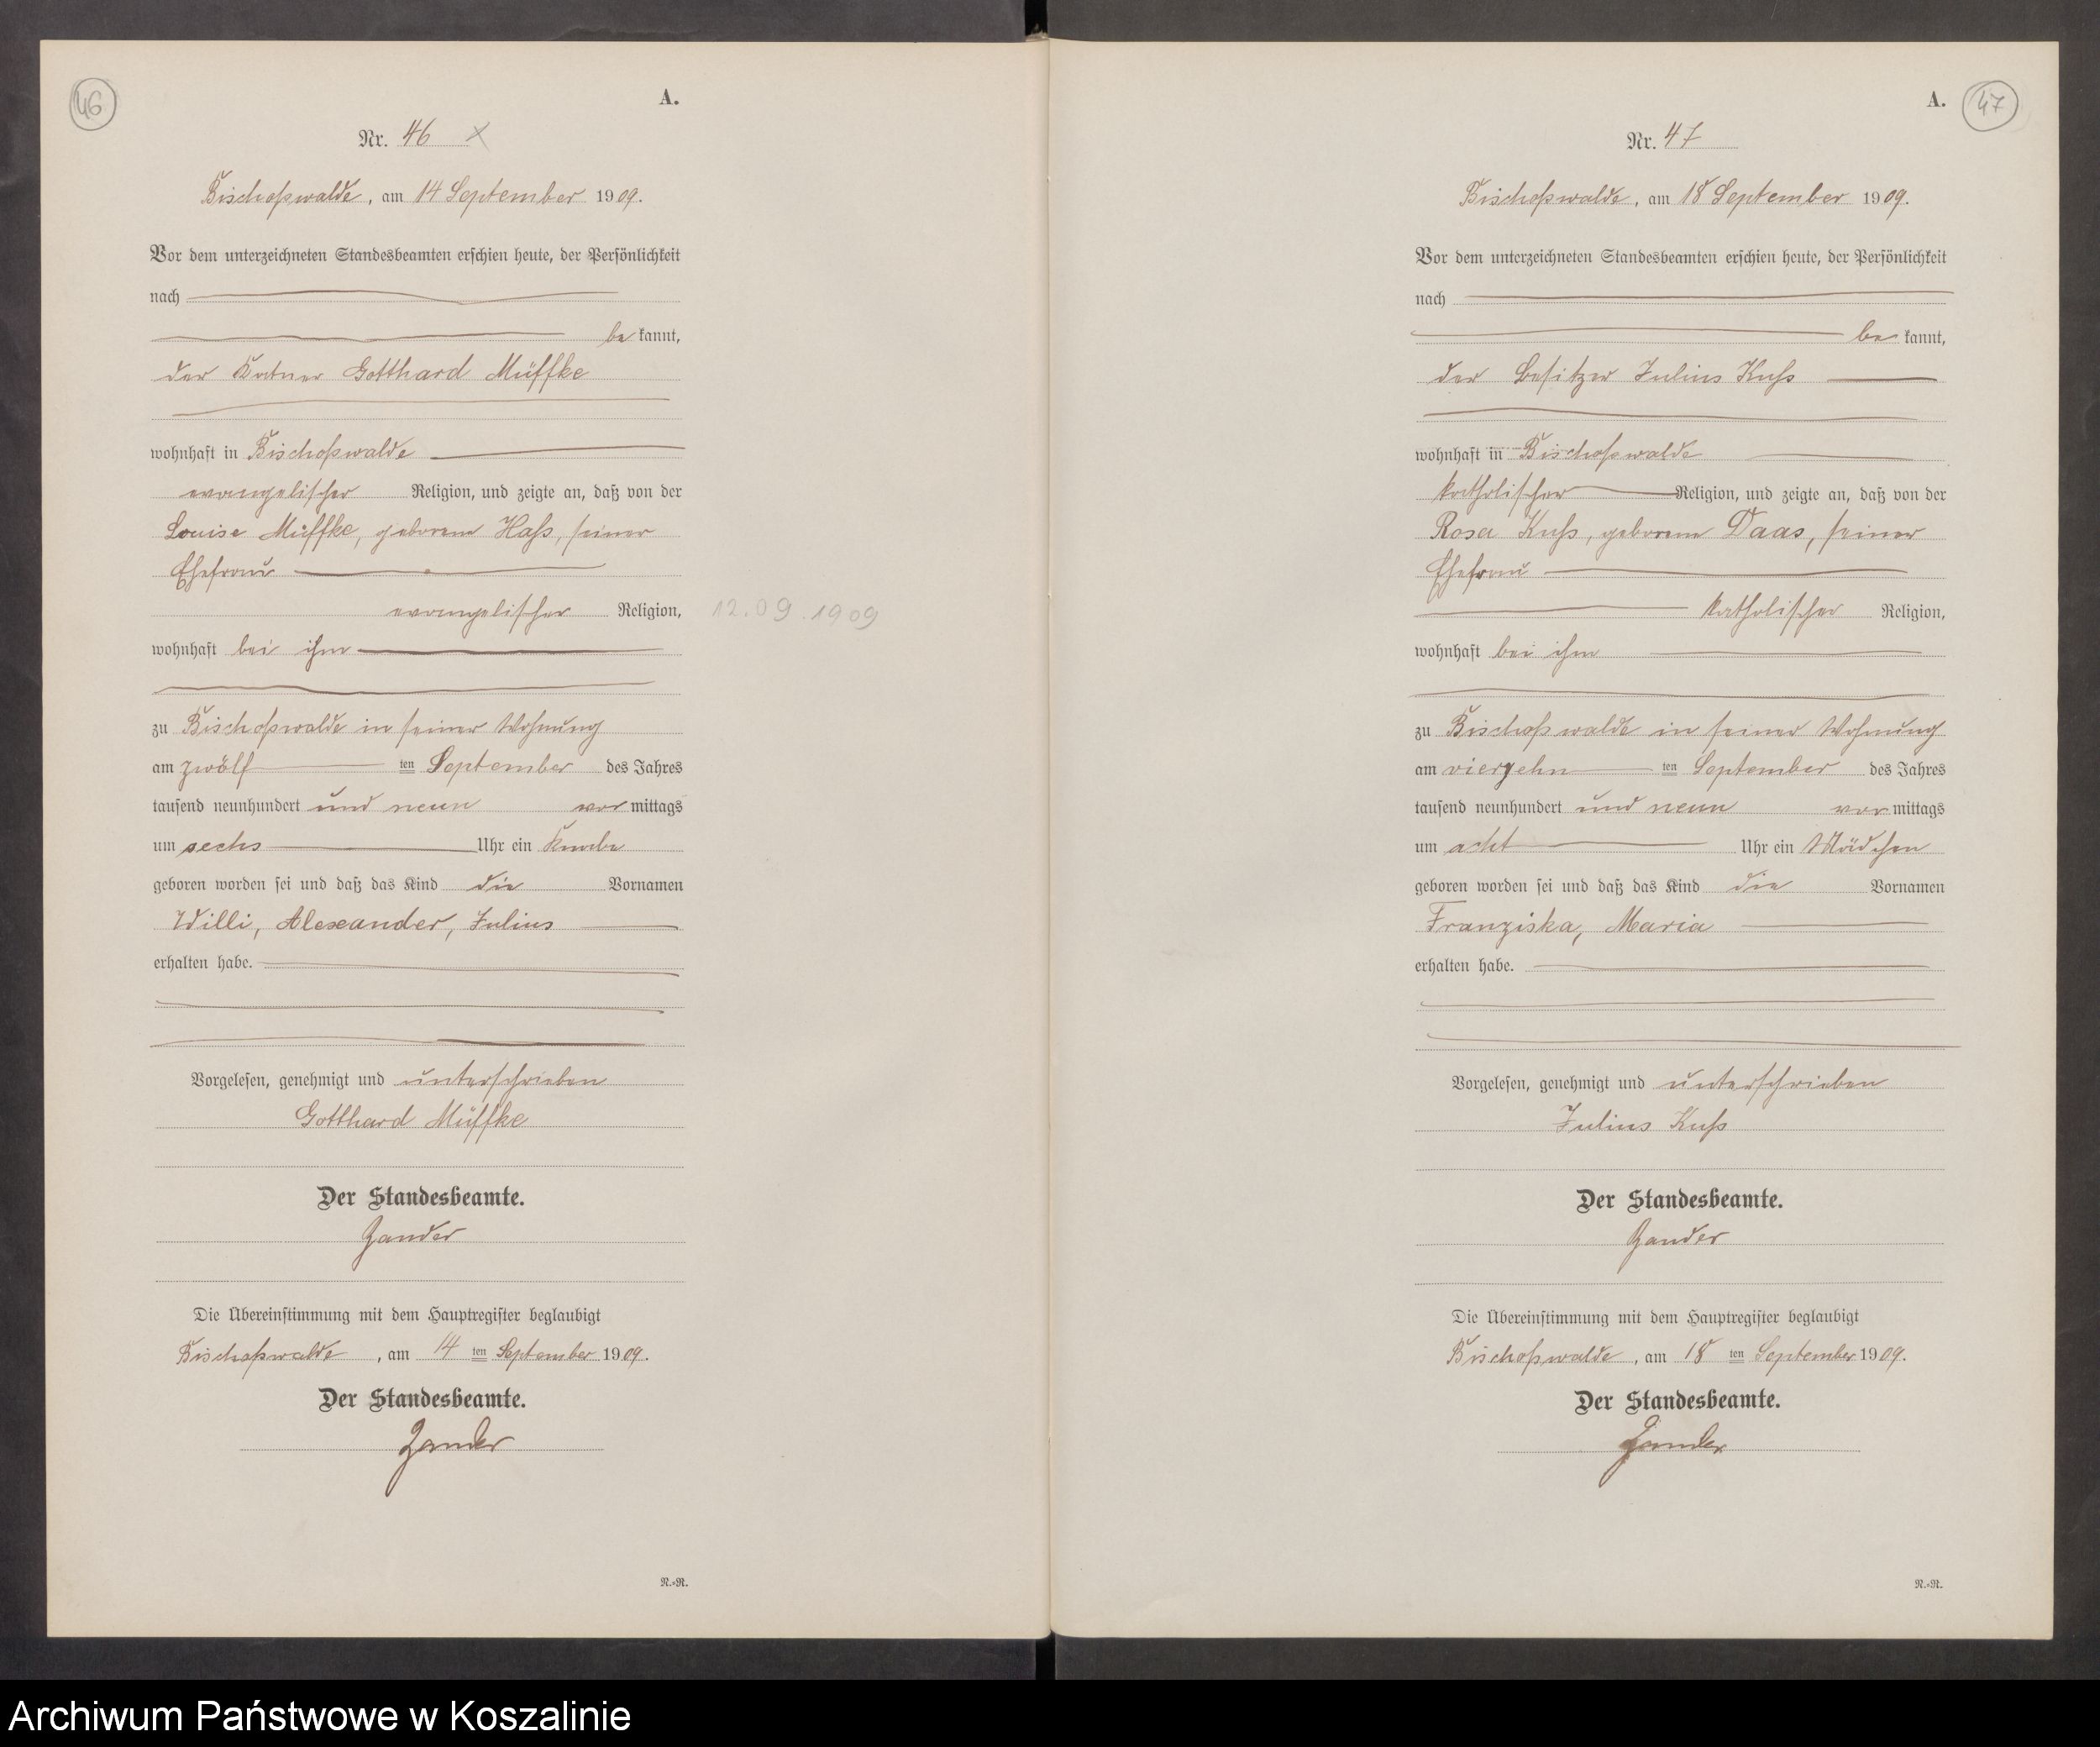 46
A.
Nr. 46 x
Bischofswalde, am 14 September 1909.
Vor dem unterzeichneten Standesbeamten erschien heute, der Persönlichkeit
nach
bekannt,
der Katner Gotthard Müffke
wohnhaft in Bischofswalde
evangelischer Religion, und zeigte an, daß von der
Louise Müffke, geborene Hass, seiner
Ehefrau
evangelischer Religion,
12.09.1909
wohnhaft bei ihm
zu Bischofswalde in seiner Wohnung
am zwölf ten September des Jahres
tausend neunhundert und neun vormittags
um sechs Uhr ein Knabe
geboren worden sei und daß das Kind die Vornamen
Willi, Alexander, Julius
erhalten habe.
Vorgelesen, genehmigt und unterschrieben
Gotthard Müffke
Der Standesbeamte.
Zander
Die Übereinstimmung mit dem Hauptregister beglaubigt
Bischofswalde, am 14 ten September 1909.
Der Standesbeamte.
Zander
N.-R.
A.
47
Nr. 47
Bischofswalde, am 18 September 1909.
Vor dem unterzeichneten Standesbeamten erschien heute, der Persönlichkeit
nach
bekannt,
der Besitzer Julius Kuss
wohnhaft in Bischofswalde
katholischer Religion, und zeigte an, daß von der
Rosa Kuss, geborene Daas, seiner
Ehefrau
katholischer Religion,
wohnhaft bei ihm
zu Bischofswalde in seiner Wohnung
am vierzehn ten September des Jahres
tausend neunhundert und neun vormittags
um acht Uhr ein Mädchen
geboren worden sei und daß das Kind die Vornamen
Franziska, Maria
erhalten habe.
Vorgelesen, genehmigt und unterschrieben
Julius Kuss
Der Standesbeamte.
Zander
Die Übereinstimmung mit dem Hauptregister beglaubigt
Bischofswalde, am 18 ten September 1909.
Der Standesbeamte.
Zander
N.-R.
Archiwum Państwowe w Koszalinie